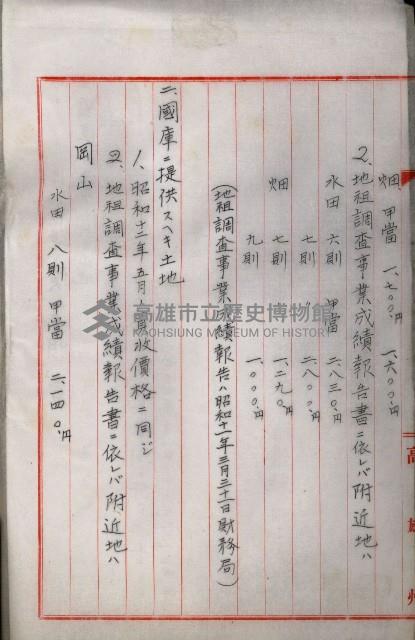 畑 甲當 一、七〇〇、円 一、六〇〇、円
2、地租調査事業成績報告書ニ依レバ附近地ハ
水田 六則 甲當 二、八三〇、円
七則 二、八〇〇、円
畑 七則 一、二九〇、円
九則 一、〇〇〇、円
(地租調査事業成績報告ハ昭和十一年三月三十一日財務局)
二、國庫ニ提供スヘキ土地
1、昭和十二年五月買收價格ニ同ジ
2、地租調査事業成績報告書ニ依レバ附近地ハ
岡山
水田 八則 甲當 二、一四〇、円
高雄州
高雄市立歷史博物館
KAOHSIUNG MUSEUM OF HISTORY